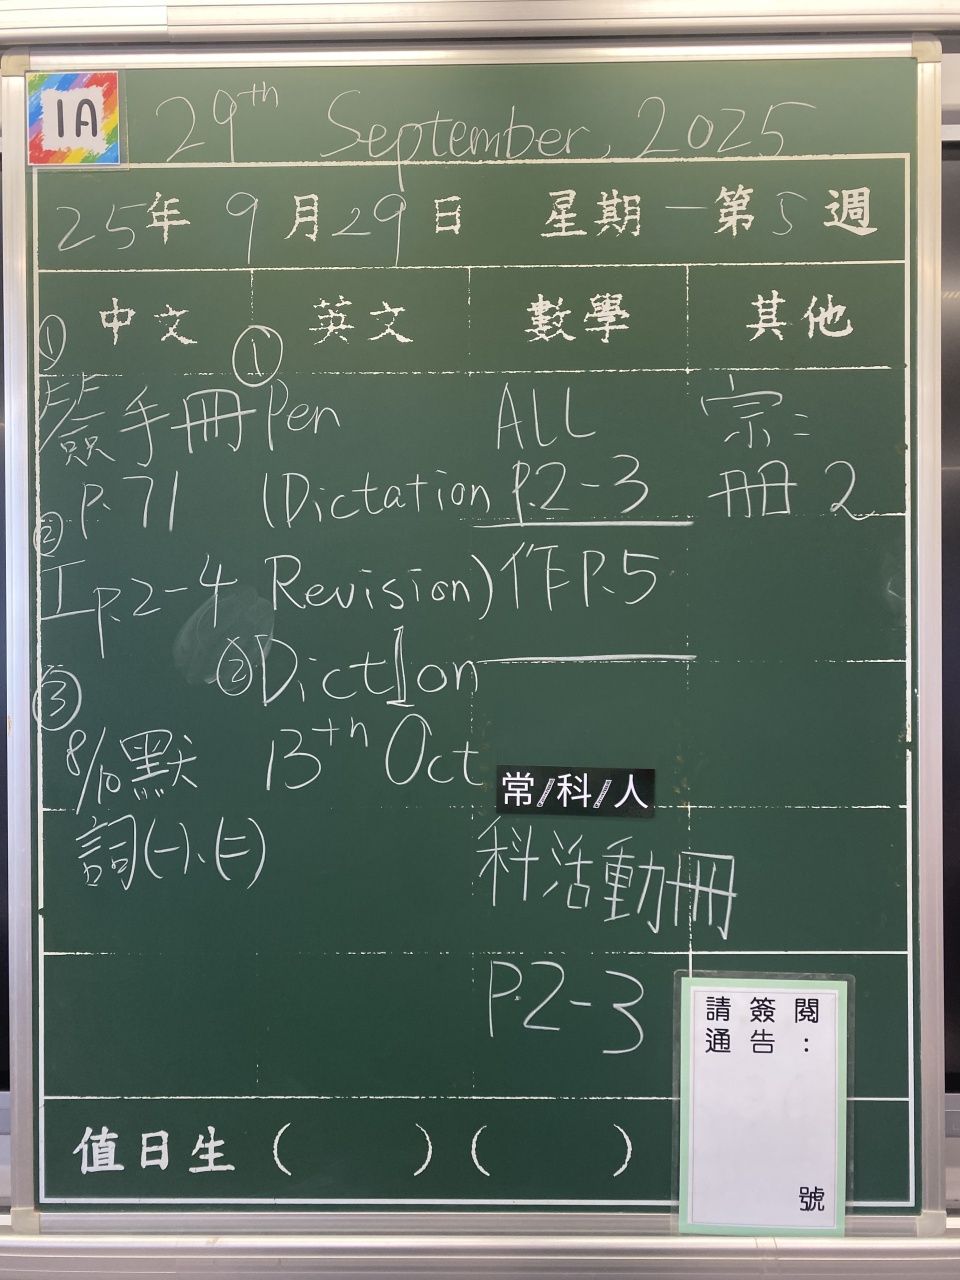 1A
29th September, 2025
25年 9月29日 星期一第5週
中文 英文 數學 其他
①
簽手冊
P.71
②
工P.2-4
③
8/10默
詞(一)、(二)
①
Pen
(Dictation
Revision)
②Dict1on
13th Oct
ALL
P.2-3
作P.5
常/科/人
科活動冊
P.2-3
宗:
冊2
請簽閱
通告:
號
值日生( )( )